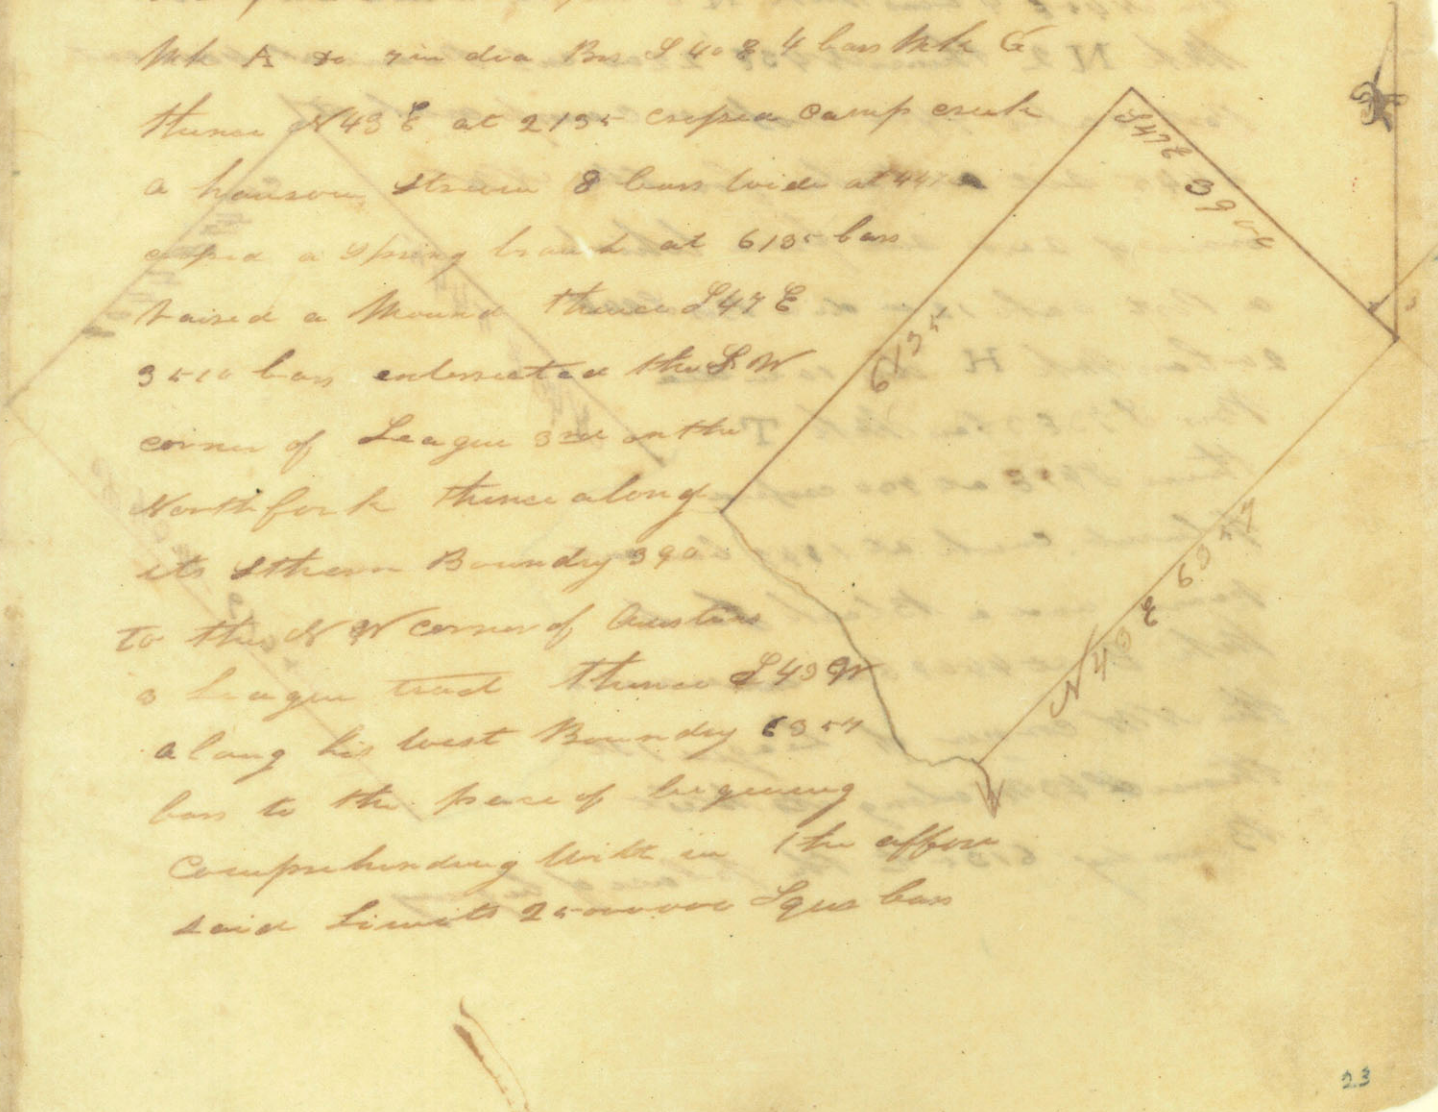 Mk A do 7 in dia Brs S 40 E 4 bars Mk G
thence N43E at 2135 crossed Camp creek
a stream 8 bars wide at
crossed a Spring branch at 6135 bars
raised a Mound thence S47E
3510 bars entersected the S.W
corner of League 3rd on the
North fork thence along
its Sthern Boundry 390
to the N W corner of Austins
3 League tract thence S43W
along his West Boundry 6357
bars to the place of begining
Comprehending With in the affore
said Limits 25000000 Squr bars
S47E 3900
6135
N43E 6357
23